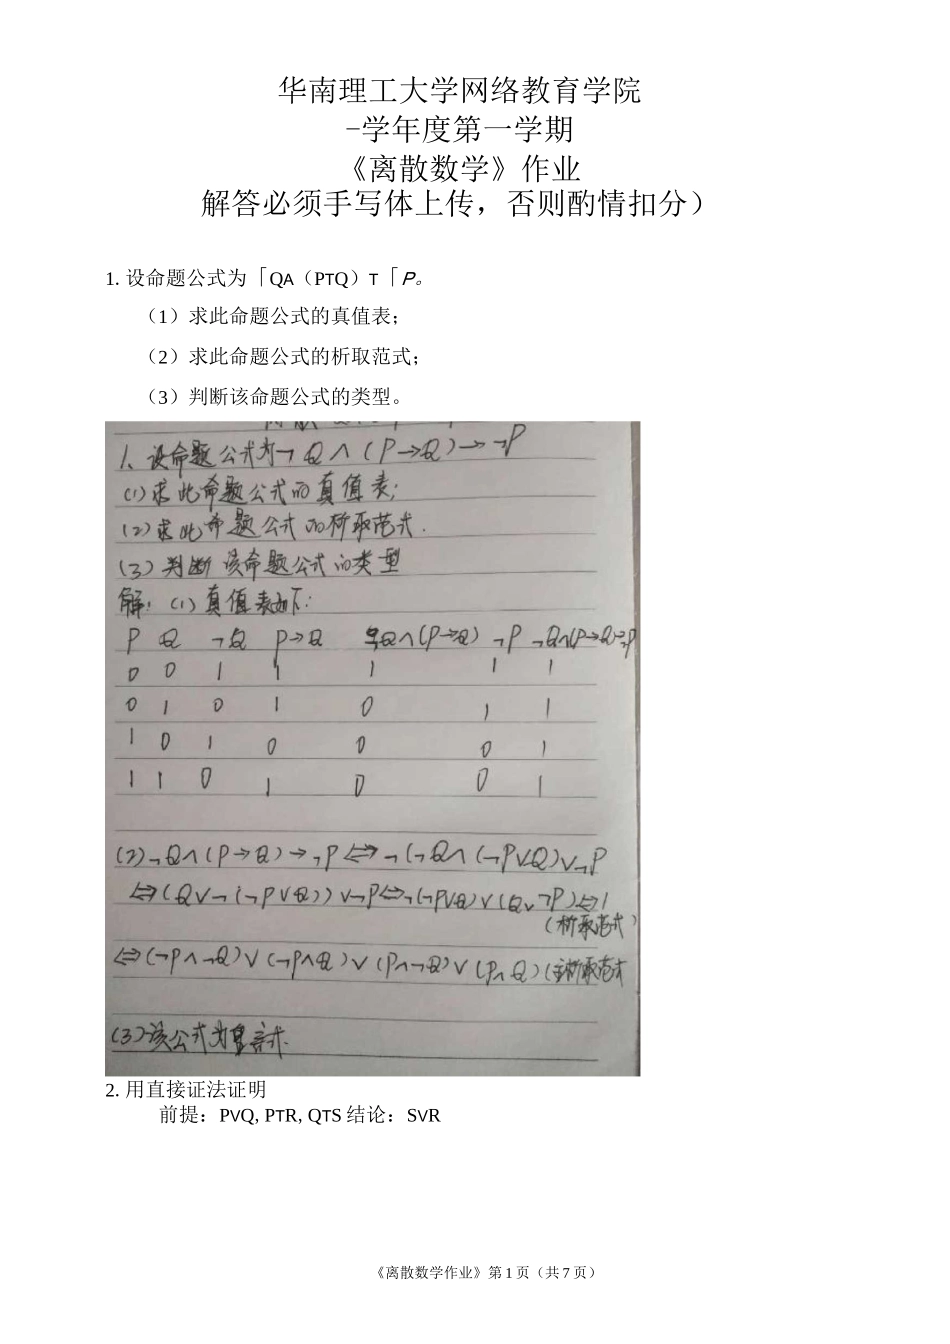 华南理工大学网络教育学院
-学年度第一学期
《离散数学》作业
解答必须手写体上传，否则酌情扣分）
1. 设命题公式为「QA（PTQ）T「P。
（1）求此命题公式的真值表；
（2）求此命题公式的析取范式；
（3）判断该命题公式的类型。
1、设命题公式为¬Q∧(P→Q)→¬P
(1)求此命题公式的真值表;
(2)求此命题公式的析取范式.
(3)判断该命题公式的类型
解: (1)真值表如下:
P Q ¬Q P→Q ¬Q∧(P→Q) ¬P ¬Q∧(P→Q)→¬P
0 0 1 1 1 1 1
0 1 0 1 0 1 1
1 0 1 0 0 0 1
1 1 0 1 0 0 1
(2)¬Q∧(P→Q)→¬P⇔¬(¬Q∧(¬P∨Q)∨¬P
⇔(Q∨¬(¬P∨Q))∨¬P⇔¬(¬P∨Q)∨(Q∨¬P)⇔1
(析取范式)
⇔(¬P∧¬Q)∨(¬P∧Q)∨(P∧¬Q)∨(P∧Q)(主析取范式
(3)该公式为重言式.
2. 用直接证法证明
前提：PVQ, PTR, QTS 结论：SVR
《离散数学作业》第 1 页（共 7 页）